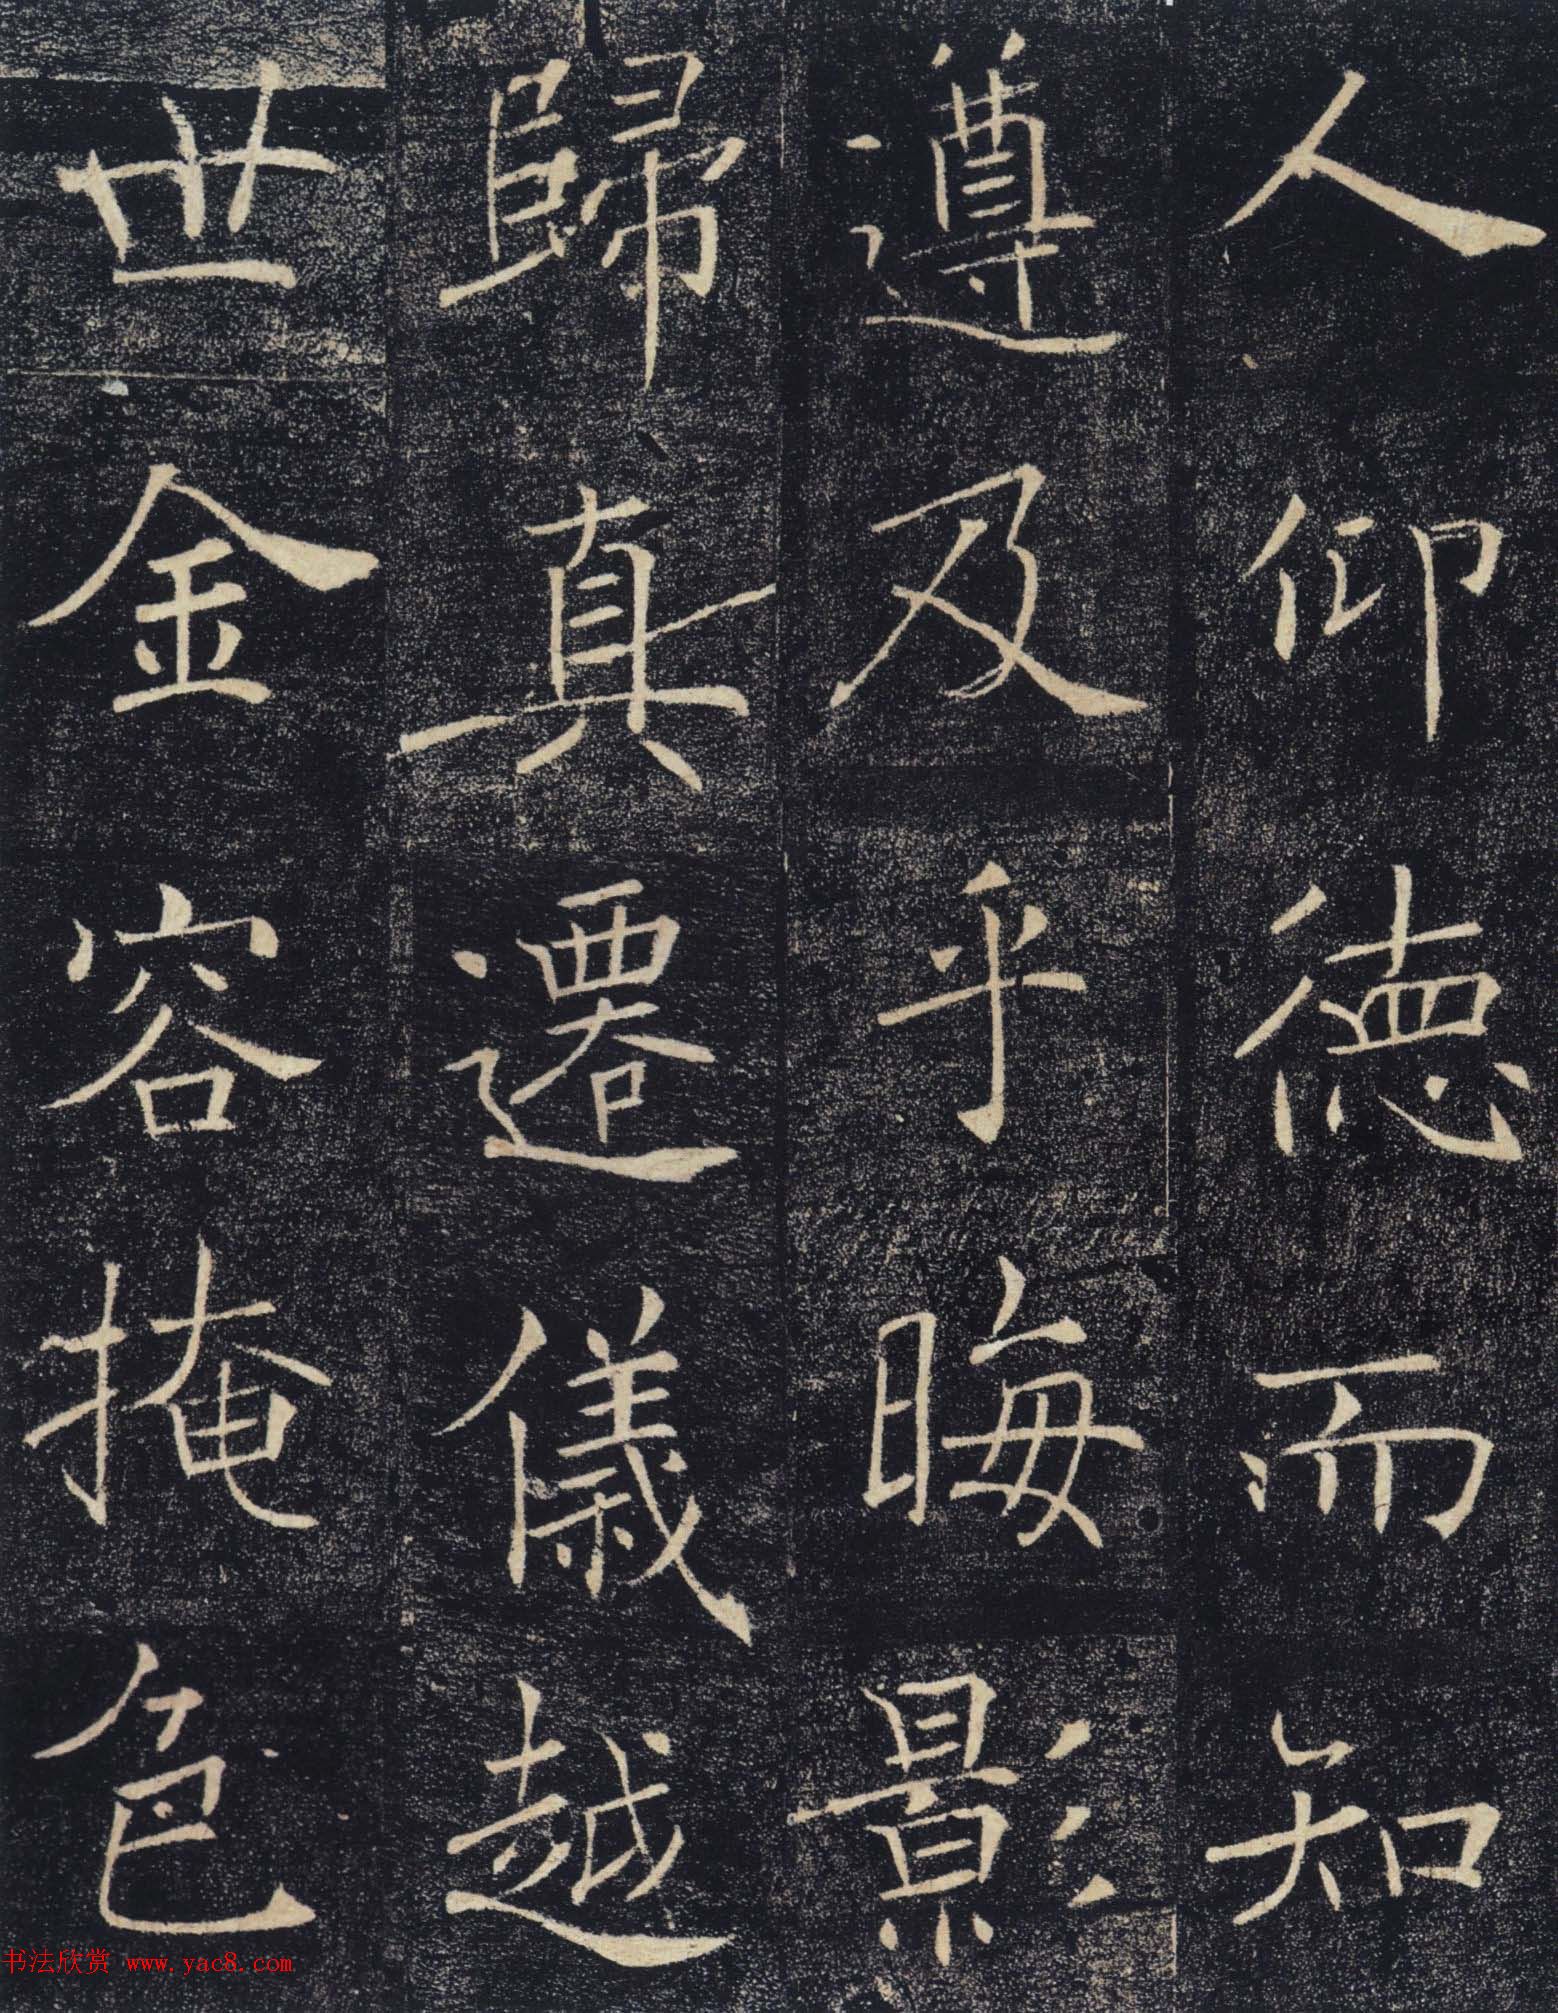 人仰德而知
遵及乎晦影
歸真遷儀越
世金容掩色
书法欣赏 www.yac8.com